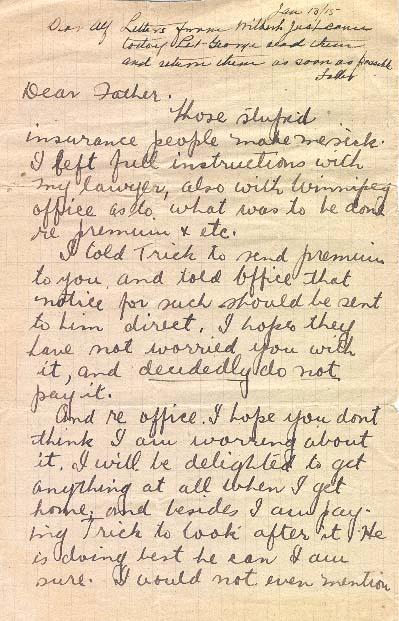 Jan 13/15
Dear Alf Letters from Wilbert just came
today Let George read them
and return them as soon as possible
Father
Dear Father.
Those stupid
insurance people make me sick.
I left full instructions with
my lawyer, also with Winnipeg
office as to what was to be done
re premium & etc.
I told Trick to send premium
to you and told office that
notice for such should be sent
to him direct. I hope they
have not worried you with
it, and decidedly do not
pay it.
And re office. I hope you dont
think I am worring about
it. I will be delighted to get
anything at all when I get
home, and besides I am pay-
ing Trick to look after it. He
is doing best he can I am
sure. I would not even mention